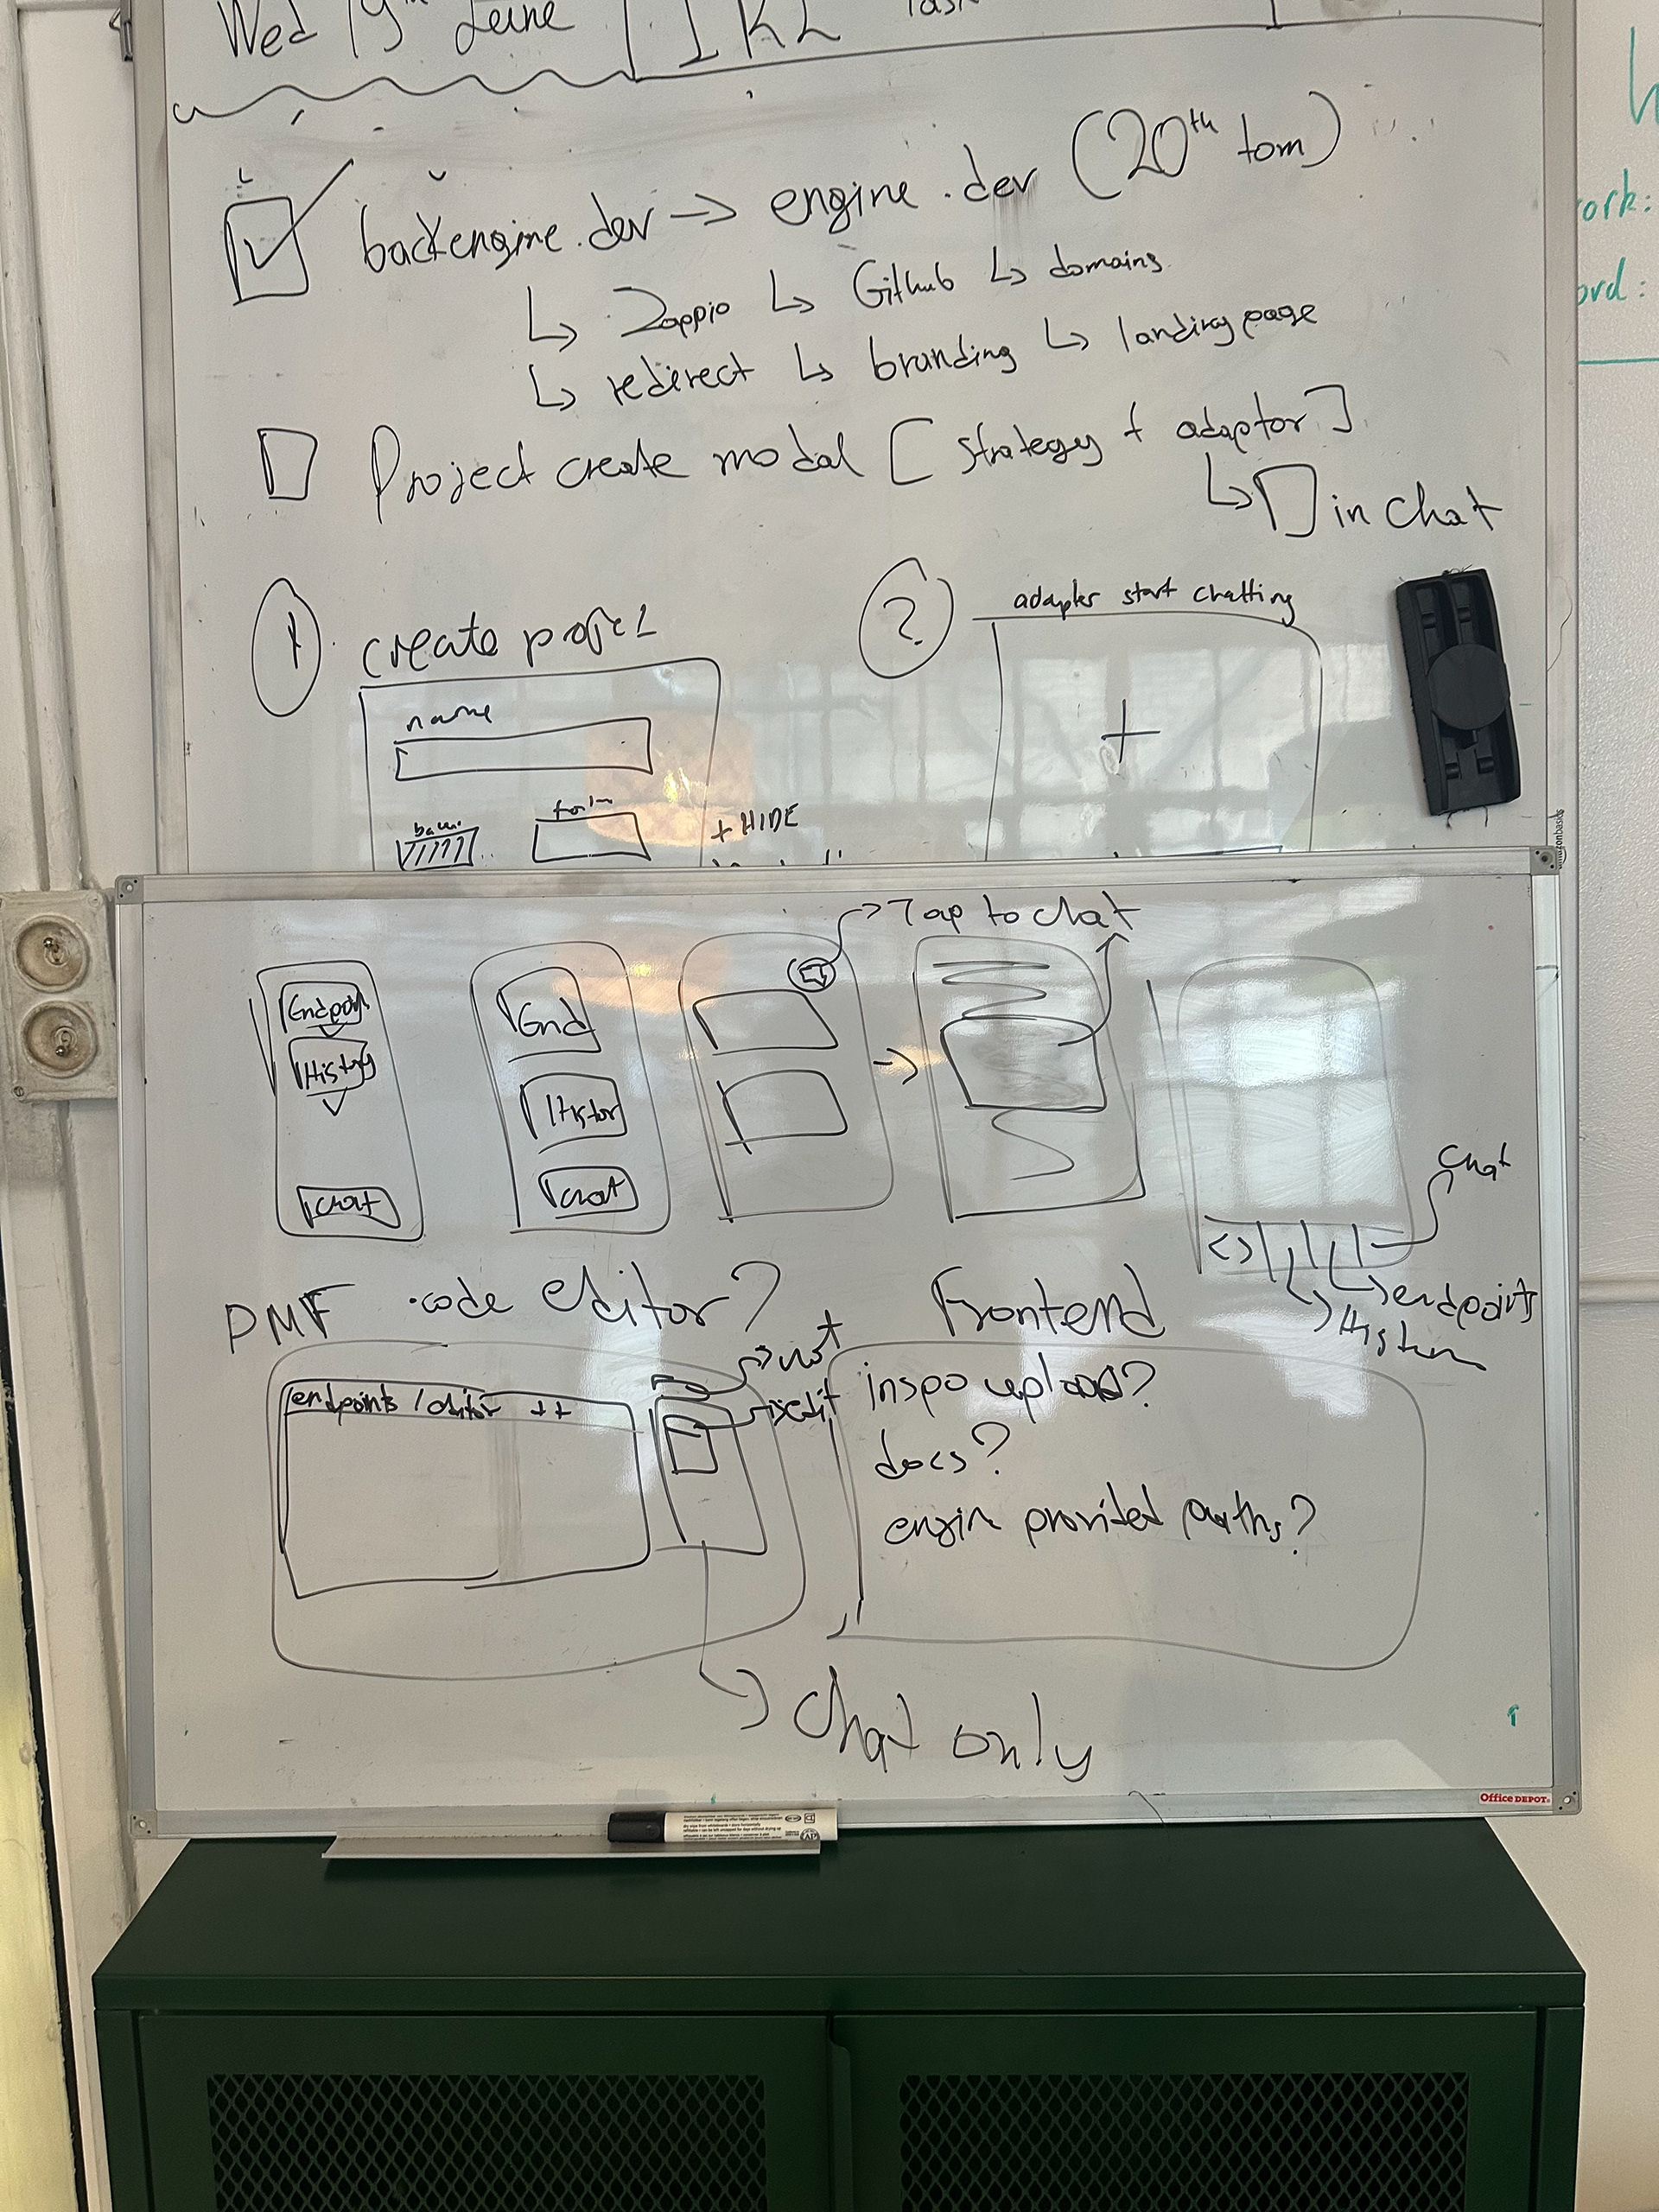 Wed 19th June
backengine.dev → engine.dev (20th tom)
↳ Zappio ↳ Github ↳ domains
↳ redirect ↳ branding ↳ landing page
Project create modal [strategy + adaptor]
↳ in chat
1 create projec
name
+ HIDE
? adapter start chatting
+
amazonbasics
ork:
ord:
Tap to chat
Endpoin
History
chat
End
Histor
chat
<>
chat
endpoints
PMF code editor?
endpoints / editor ++
Frontend
inspo upload?
docs?
engin provided paths?
chat only
Office DEPOT